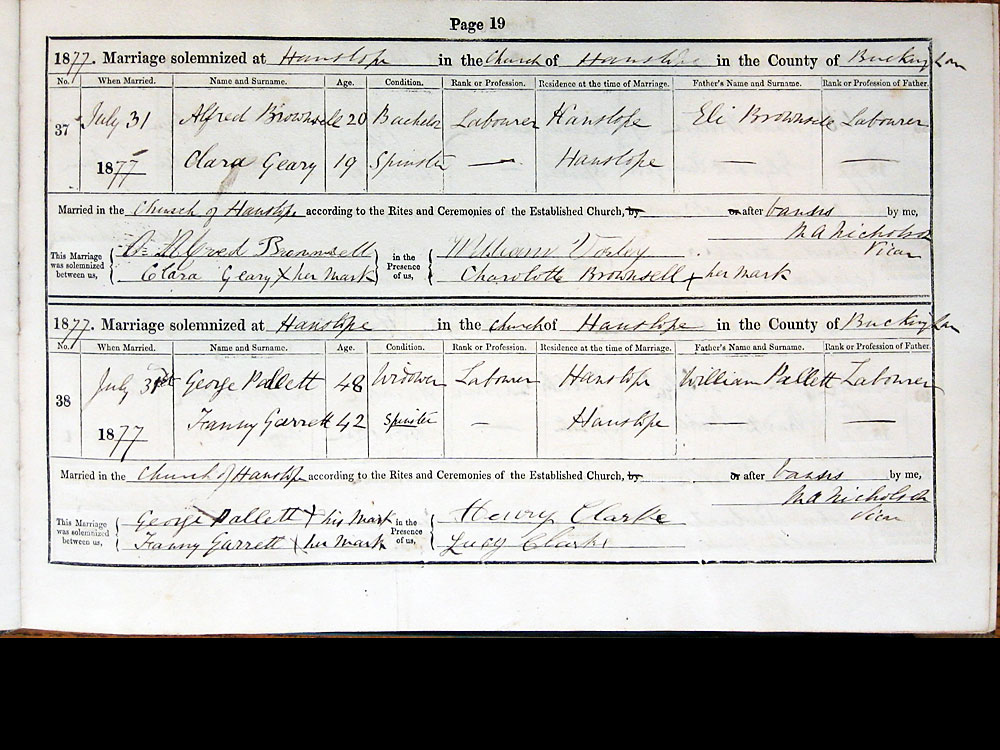 Page 19
1877. Marriage solemnized at Hanslope in the Church of Hanslope in the County of Buckingham
No. When Married. Name and Surname. Age. Condition. Rank or Profession. Residence at the time of Marriage. Father's Name and Surname. Rank or Profession of Father.
37 July 31 Alfred Brownsell 20 Bachelor Labourer Hanslope Eli Brownsell Labourer
1877 Clara Geary 19 Spinster — Hanslope — —
Married in the Church of Hanslope according to the Rites and Ceremonies of the Established Church, by or after banns by me,
M A Nicholson
Vicar
This Marriage was solemnized between us, Alfred Brownsell in the Presence of us, William
Clara Geary X her mark Charolotte Brownsell X her mark
1877. Marriage solemnized at Hanslope in the Church of Hanslope in the County of Buckingham
No. When Married. Name and Surname. Age. Condition. Rank or Profession. Residence at the time of Marriage. Father's Name and Surname. Rank or Profession of Father.
38 July 31st George Pallett 48 Widower Labourer Hanslope William Pallett Labourer
1877 Fanny Garrett 42 Spinster — Hanslope — —
Married in the Church of Hanslope according to the Rites and Ceremonies of the Established Church, by or after banns by me,
M A Nicholson
Vicar
This Marriage was solemnized between us, George Pallett his mark in the Presence of us, Henry Clarke
Fanny Garrett her mark Lucy Clarke